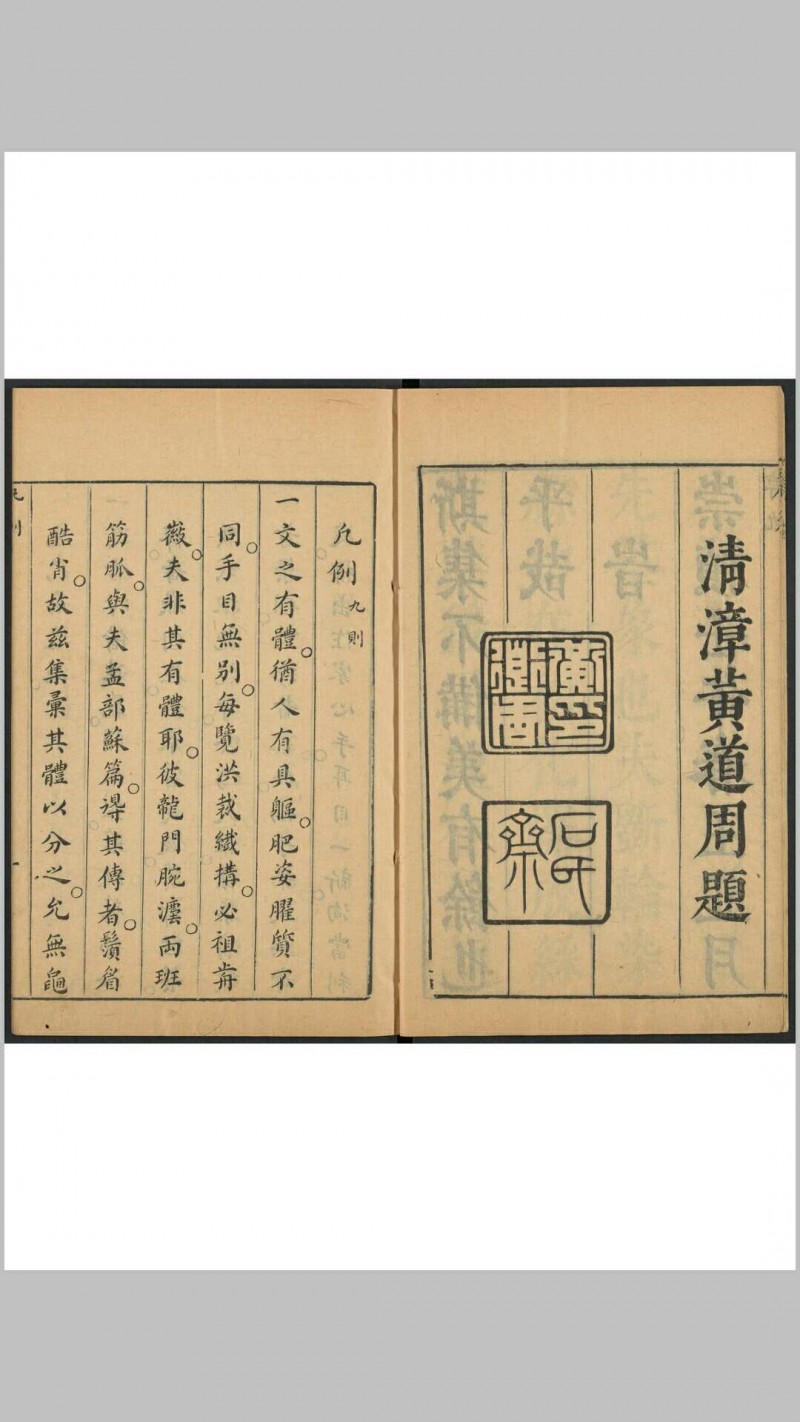 清漳黃道周題
石氏齋
凡例九則
一文之有體猶人有具軀肥姿臞質不
同手目無別每覽洪裁纖搆必祖荐
薇夫非其有體耶彼龍門腕澐两班
筋脈與夫孟部蘇篇禪其傳者鬚眉
酷肖故茲集彙其體以分之允無
凡例
一